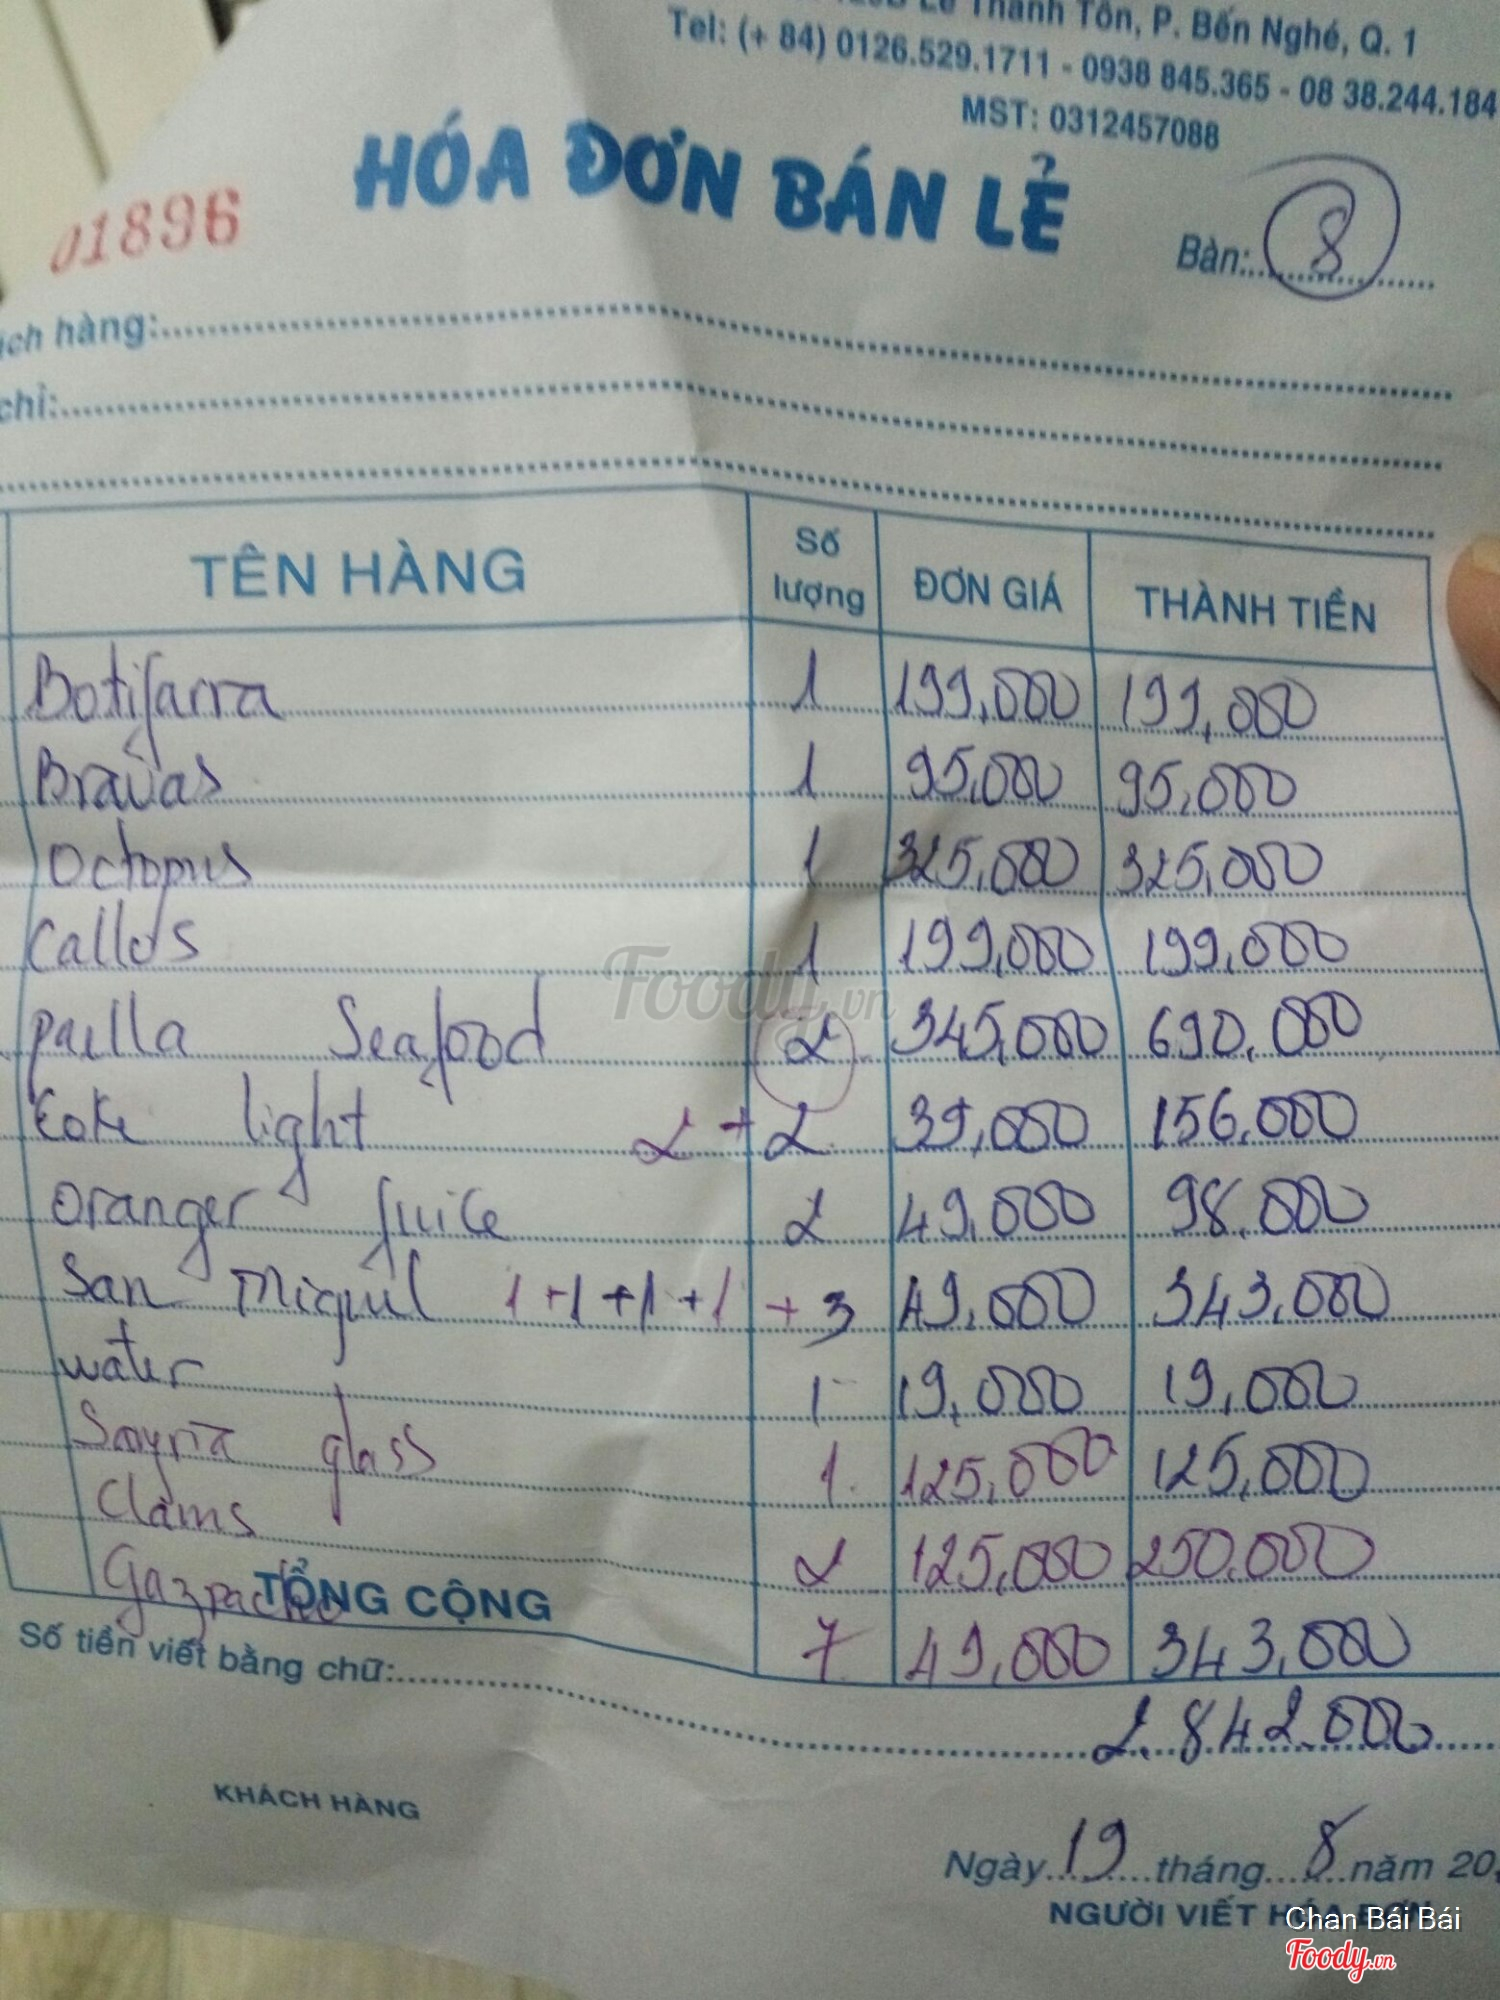 Lê Thánh Tôn, P. Bến Nghé, Q. 1
Tel: (+ 84) 0126.529.1711 - 0938 845.365 - 08 38.244.184
MST: 0312457088
HÓA ĐƠN BÁN LẺ
01896
Bàn: 8
ách hàng:
chỉ:
TÊN HÀNG Số lượng ĐƠN GIÁ THÀNH TIỀN
Botifarra 1 199,000 199,000
Bravas 1 95,000 95,000
Octopus 1 325,000 325,000
Callos 1 199,000 199,000
paella Seafood 2 345,000 690,000
Coke light 2 + 2 39,000 156,000
Oranger juice 2 49,000 98,000
San Miguel 1 + 1 + 1 + 1 + 3 49,000 343,000
water 1 19,000 19,000
glass 1 125,000 125,000
Clams 2 125,000 250,000
Gazpacho 7 49,000 343,000
TỔNG CỘNG
Số tiền viết bằng chữ:
2.842.000
KHÁCH HÀNG
Ngày 19 tháng 8 năm 20
NGƯỜI VIẾT HÓA ĐƠN
Foody.vn
Chan Bái Bái
Foody.vn